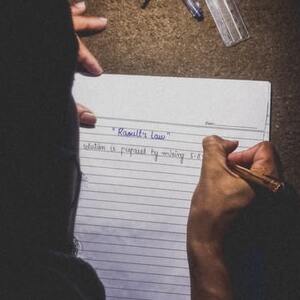 "Raoult's Law"
solution is prepared by mixing 5.0